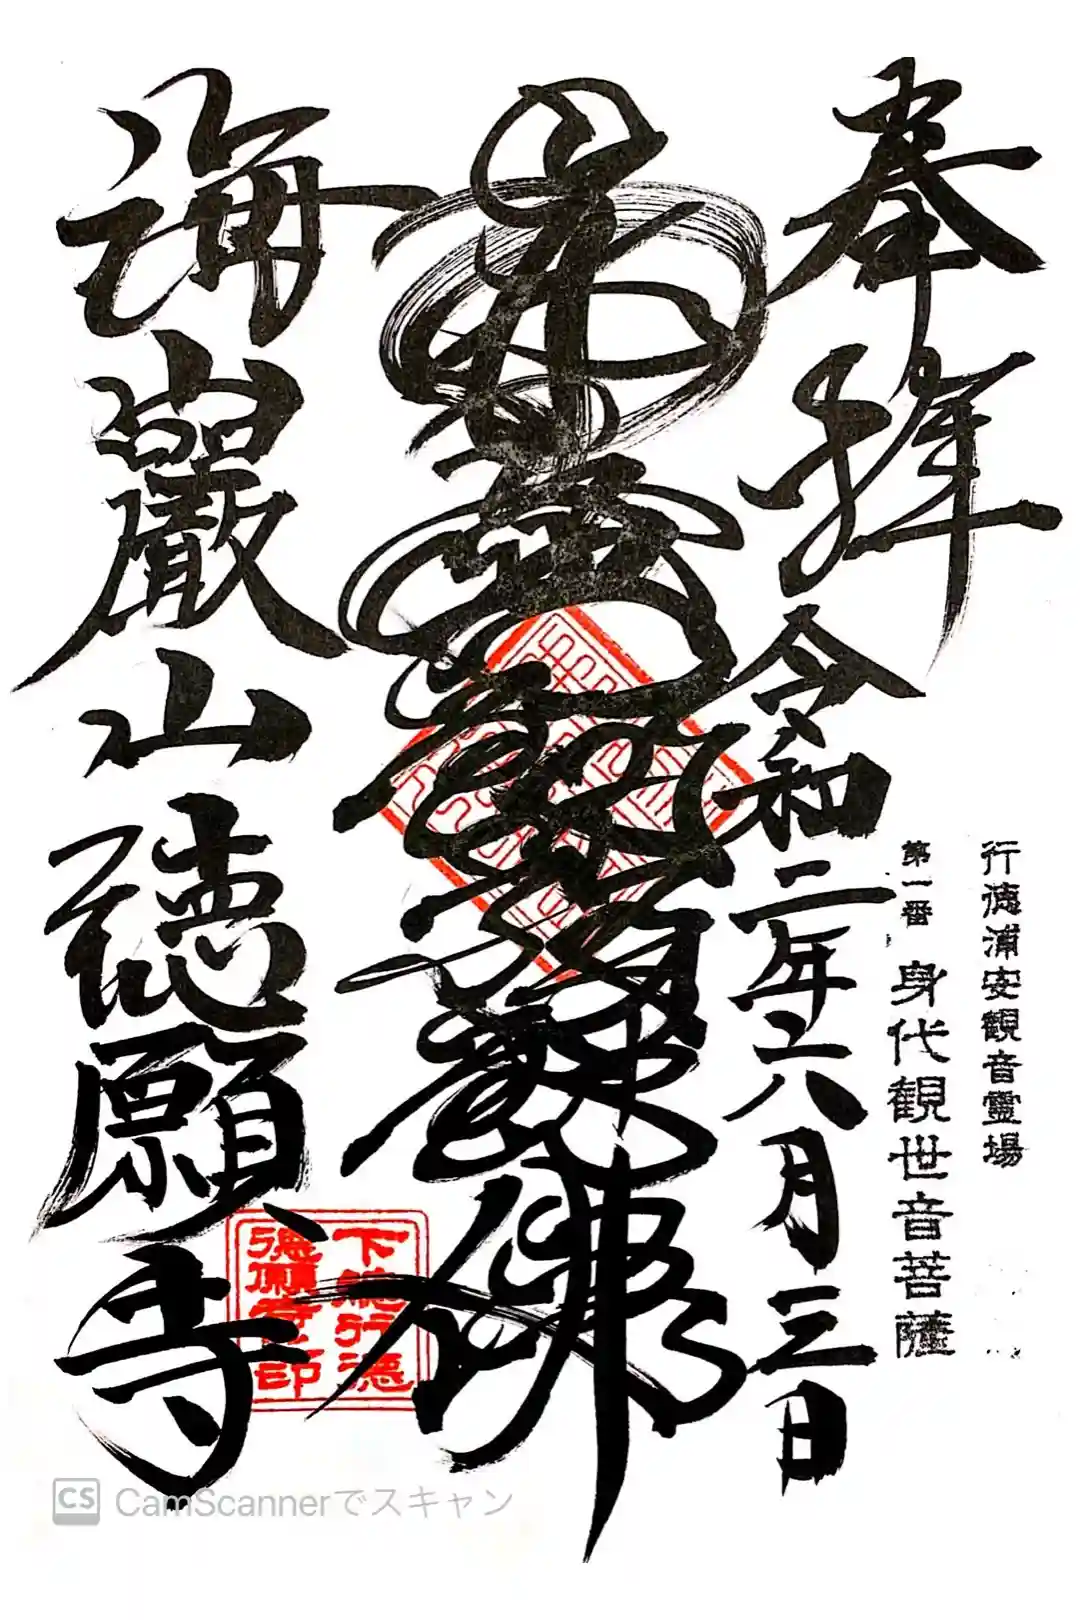 行徳浦安観音靈場
第一番 身代観世音菩薩
奉拝
令和二年六月三日
佛
海巖山徳願寺
下總行徳
徳願寺印
CS CamScannerでスキャン